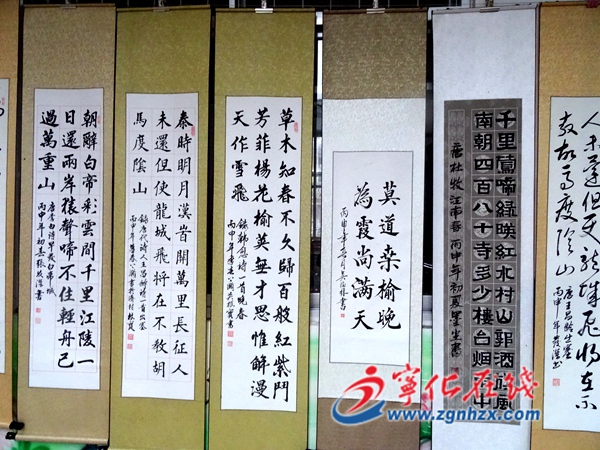 朝辭白帝彩雲間千里江陵一
日還兩岸猿聲啼不住輕舟已
過萬重山
唐李白詩早發白帝城
秦時明月漢旹關萬里長征人
未還但使龍城飛將在不教胡
馬度陰山
錄唐代詩人王昌齡詩一首出塞
草木知春不久歸百般紅紫鬥
芳菲楊花榆莢無才思惟解漫
天作雪飛
錄韓愈詩一首晚春
莫道桑榆晚
為霞尚滿天
千里鶯啼綠映紅水村山郭酒旗風
南朝四百八十寺多少樓台烟雨中
唐杜牧江南春 丙申年初夏
人未還但使龍城飛將在不
教胡馬度陰山
唐王昌齡出塞
丙申年
寧化在线
www.zgnhzx.com